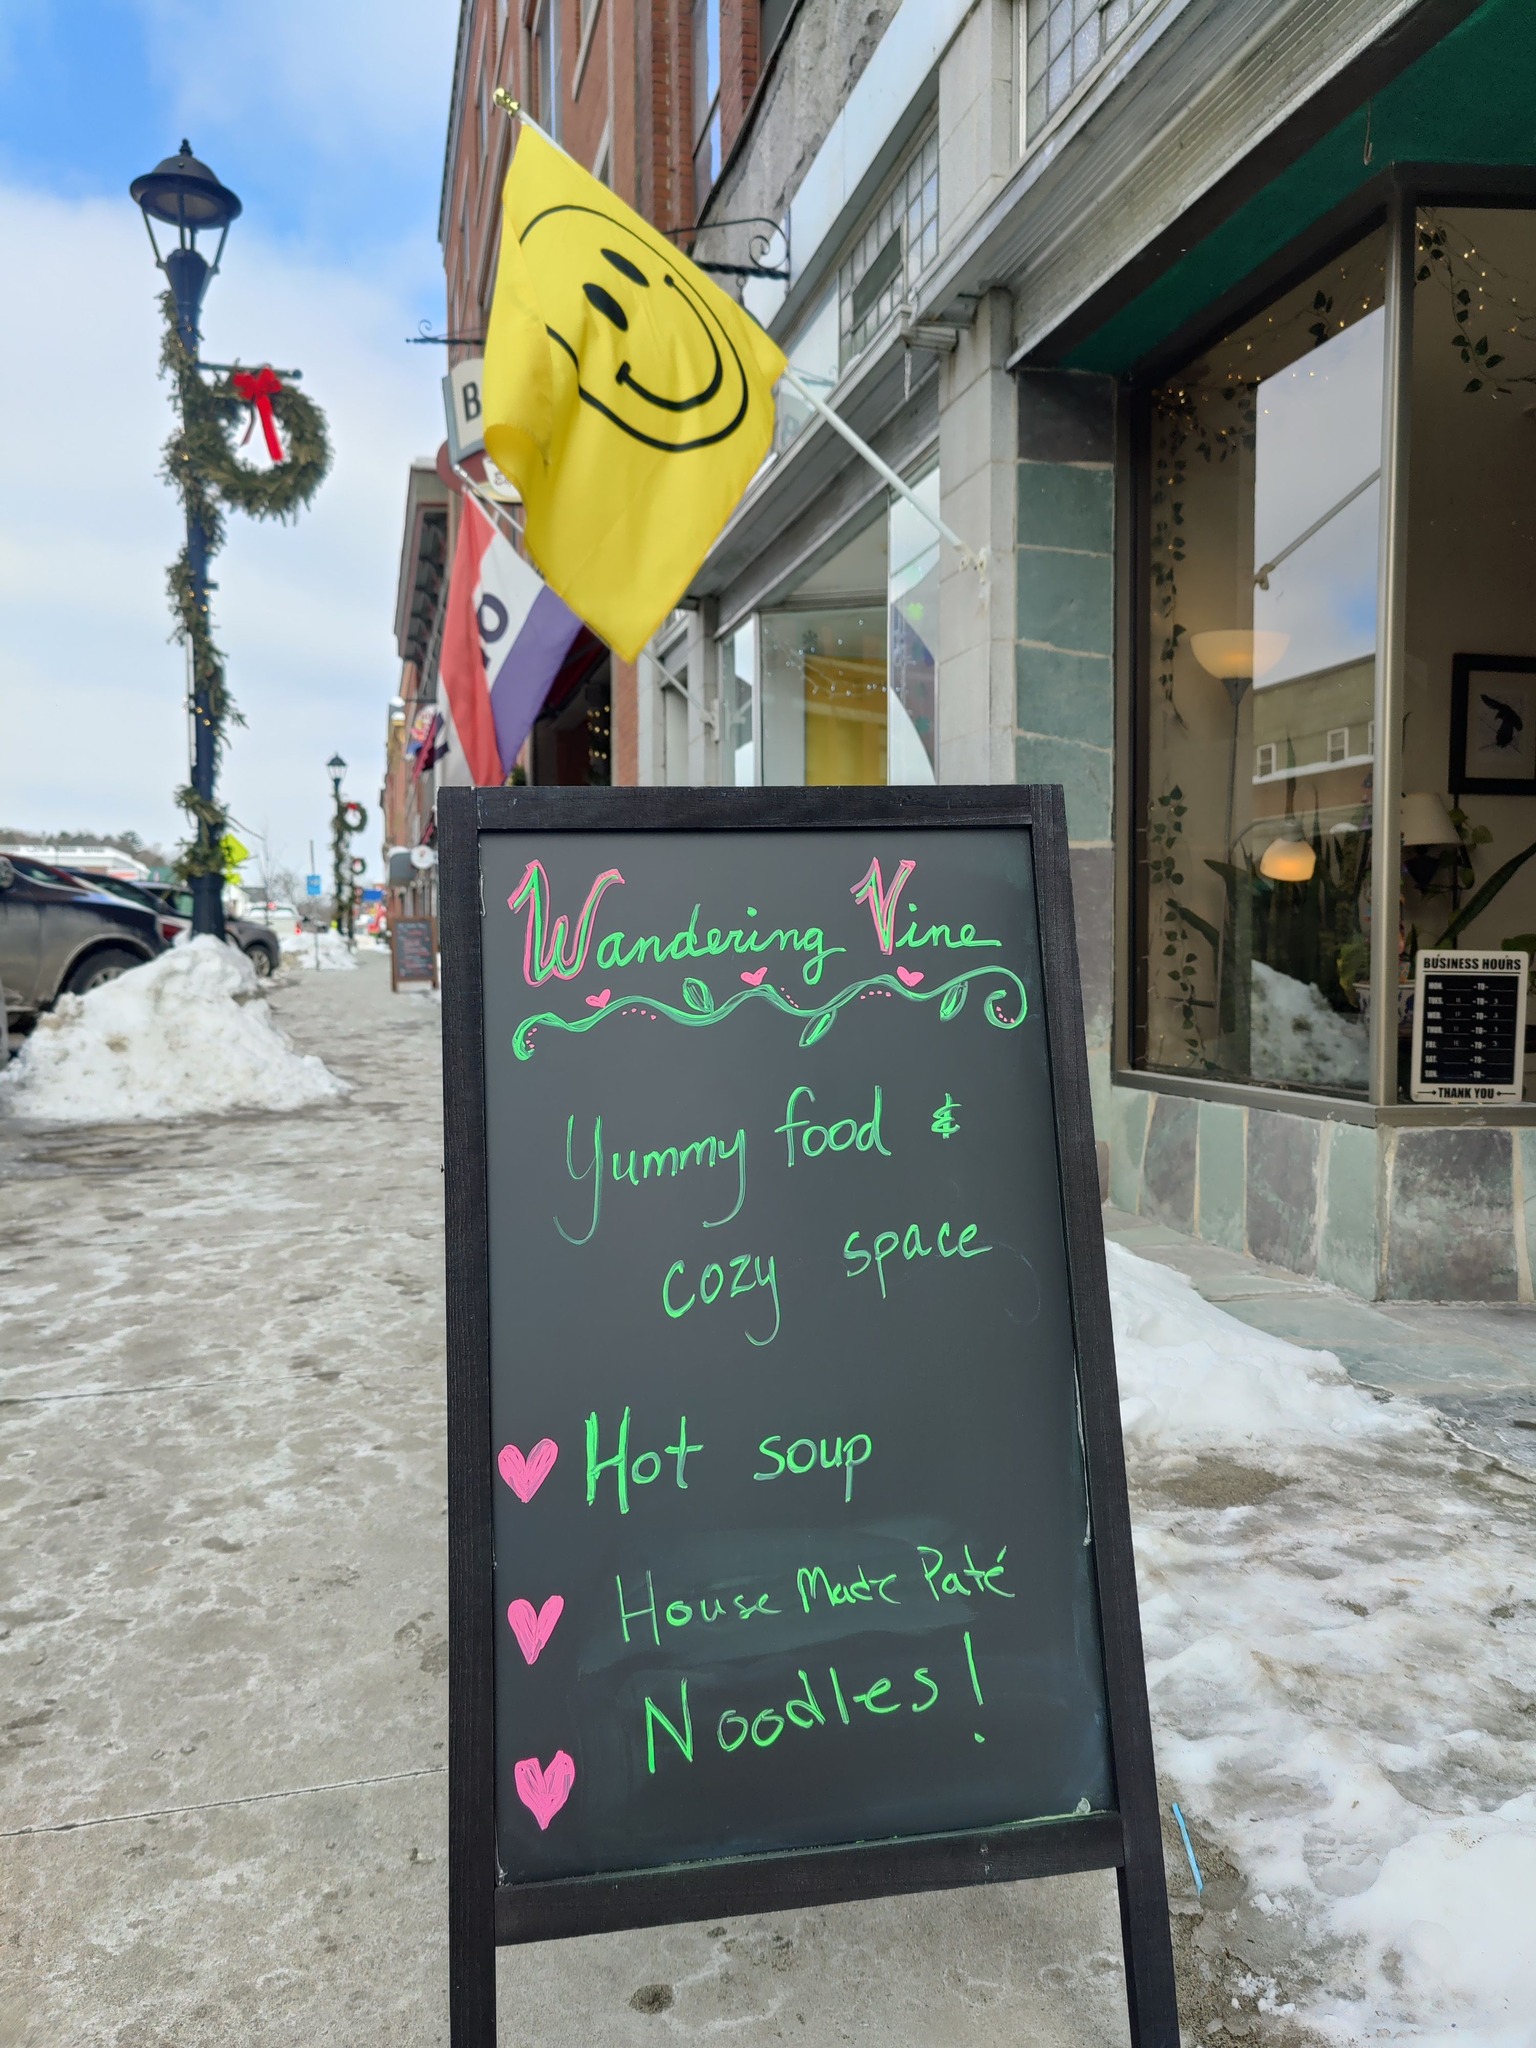 B
Wandering Vine
Yummy food &
cozy space
Hot soup
House Made Paté
Noodles!
BUSINESS HOURS
MON. -TO-
TUES. -TO-
WED. -TO-
THUR. -TO-
FRI. -TO-
SAT. -TO-
SUN. -TO-
THANK YOU